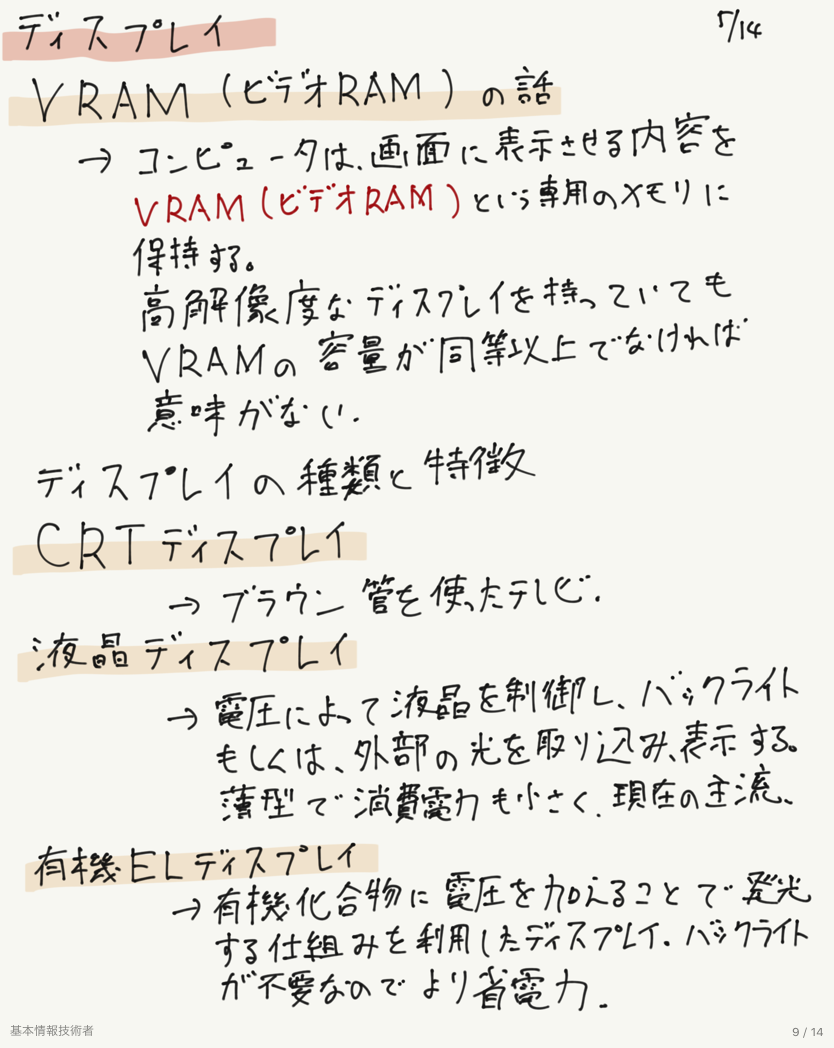 ディスプレイ
7/14
VRAM（ビデオRAM）の話
→ コンピュータは、画面に表示させる内容を
VRAM（ビデオRAM）という専用のメモリに
保持する。
高解像度なディスプレイを持っていても
VRAMの容量が同等以上でなければ
意味がない.
ディスプレイの種類と特徴
CRTディスプレイ
→ ブラウン管を使ったテレビ.
液晶ディスプレイ
→ 電圧によって液晶を制御し、バックライト
もしくは、外部の光を取り込み、表示する。
薄型で消費電力も小さく、現在の主流、
有機ELディスプレイ
→ 有機化合物に電圧を加えることで発光
する仕組みを利用したディスプレイ. バックライト
が不要なのでより省電力.
基本情報技術者
9 / 14